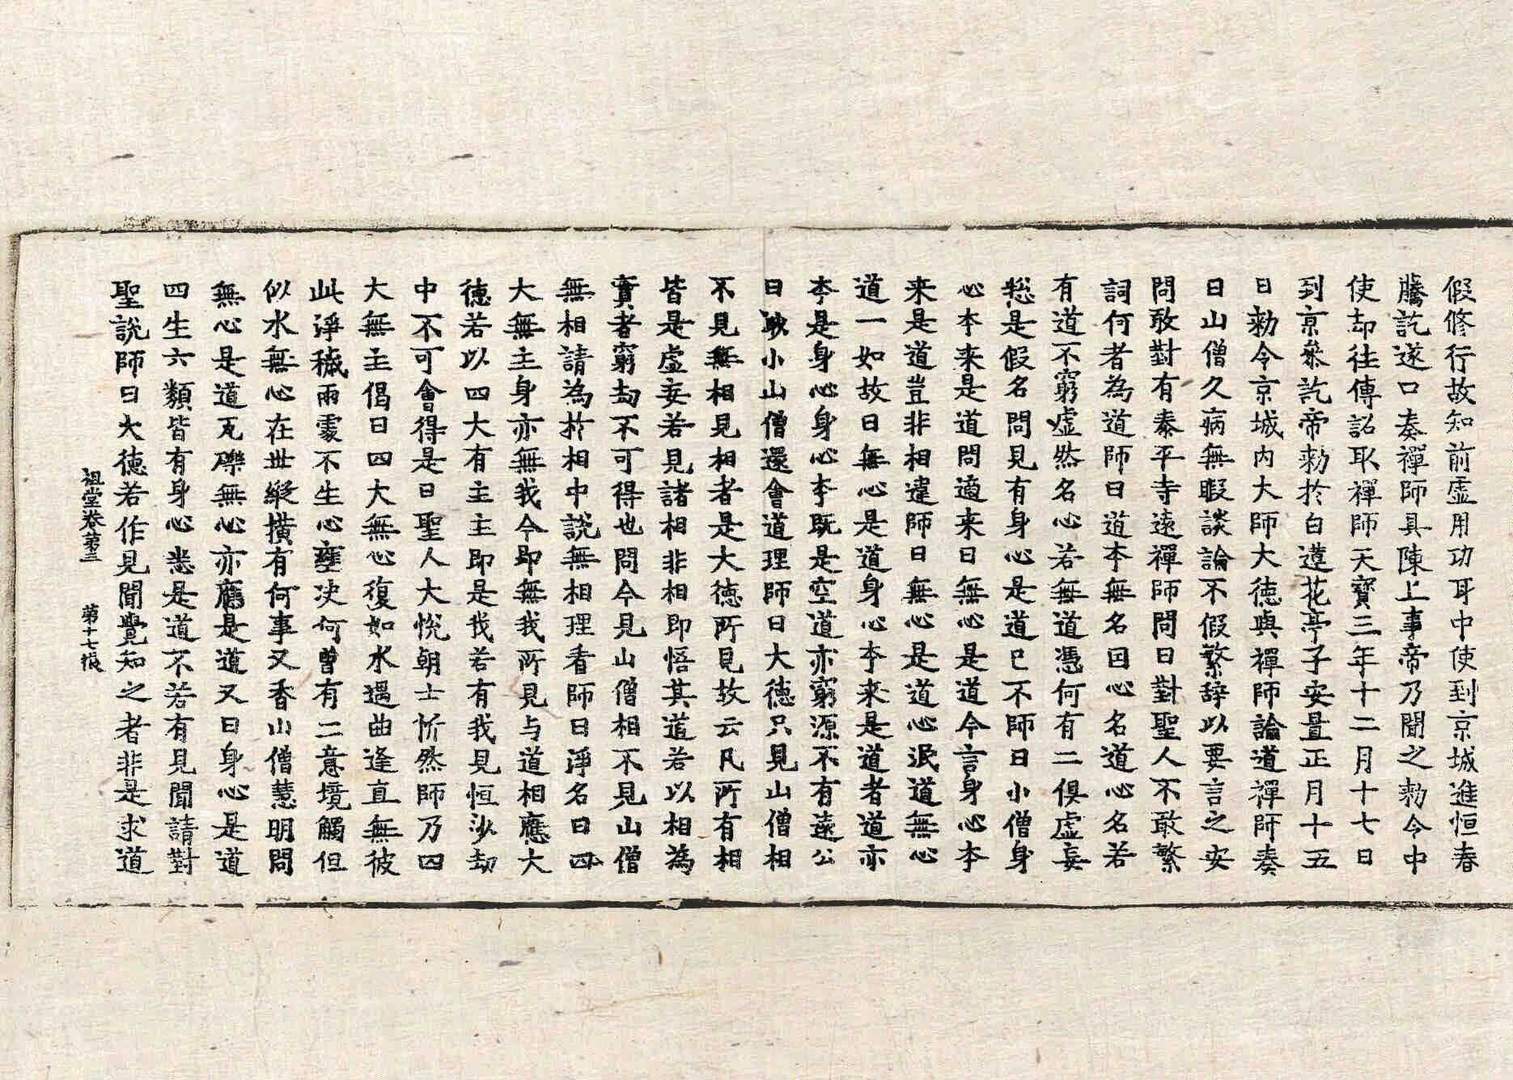 假修行故知前虛用功耳中使到京城進恒春
騰訖遂口奏禪師具陳上事帝乃聞之勑令中
使却往傳詔取禪師天寶三年十二月十七日
到京叅訖帝勑於白蓮花亭子安置正月十五
日勑令京城內大師大德與禪師論道禪師奏
曰山僧久病無暇談論不假繁辝以要言之安
問敢對有泰平寺遠禪師問曰對聖人不敢繁
詞何者為道師曰道本無名因心名道心名若
有道不窮虛然名心若無道憑何有二俱虛妄
惣是假名問見有身心是道已不師曰小僧身
心本来是道問適来曰無心是道今言身心本
来是道豈非相違師曰無心是道心泯道無心
道一如故曰無心是道身心本来是道者道亦
本是身心身心本既是空道亦窮源不有遠公
曰眇小山僧還會道理師曰大德只見山僧相
不見無相見相者是大德所見故云凡所有相
皆是虛妄若見諸相非相即悟其道若以相為
實者窮劫不可得也問今見山僧相不見山僧
無相請為於相中說無相理看師曰淨名曰四
大無主身亦無我今即無我所見与道相應大
德若以四大有主主即是我若有我見恒沙劫
中不可會得是日聖人大悅朝士忻然師乃四
大無主偈曰四大無心復如水遇曲逢直無彼
此淨穢兩處不生心壅决何曾有二意境觸但
似水無心在世縱橫有何事又香山僧慧明問
無心是道瓦礫無心亦應是道又曰身心是道
四生六類皆有身心悉是道不若有見聞請對
聖說師曰大德若作見聞覺知之者非是求道
祖堂卷第三　第十七張